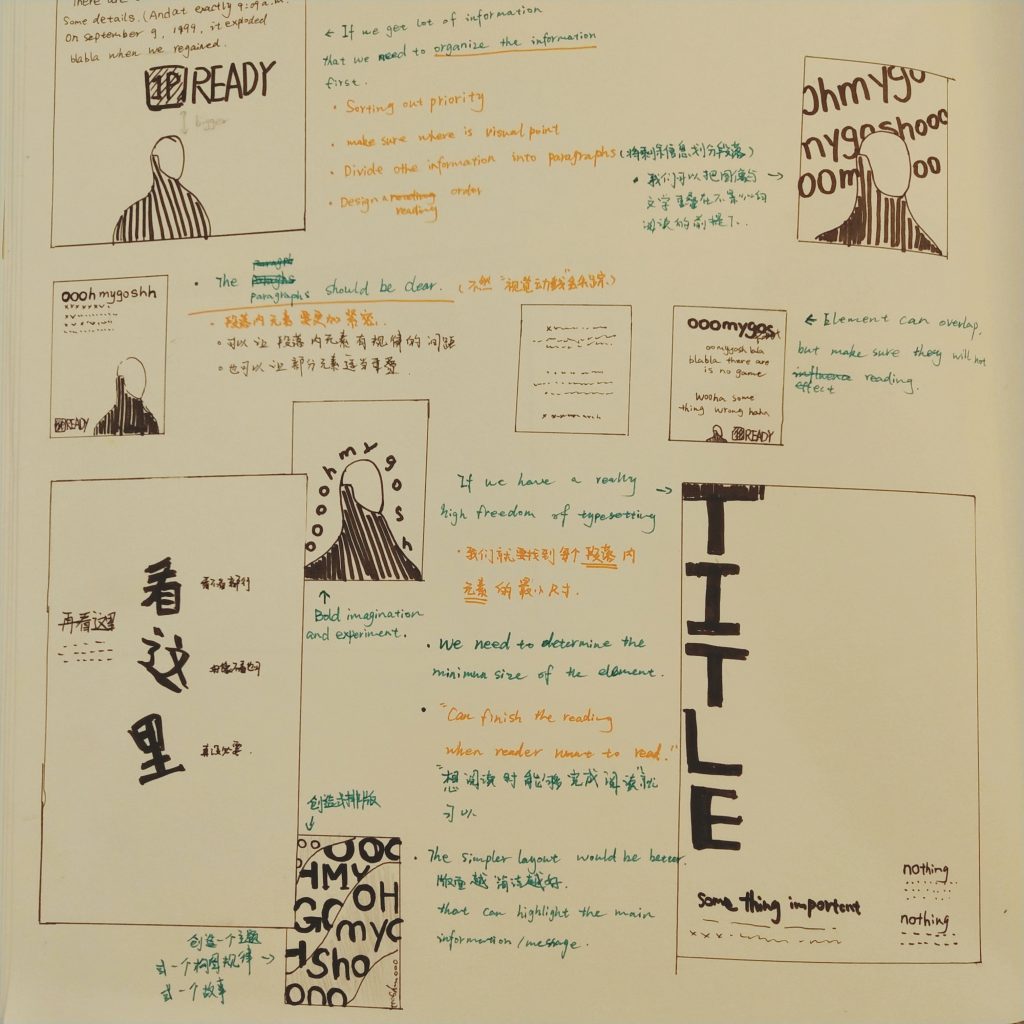 There
Some details. (And at exactly 9:09 a.m.
On September 9, 1999, it exploded
blabla when we regained.
1P READY
bigger
← If we get lot of information
that we need to organize the information
first.
• Sorting out priority
• make sure where is visual point
• Divide othe information into paragraphs (将剩余信息划分段落)
• Design a reading order
reading
• 我们可以把图像与 →
文字重叠在不影响
阅读的前提下.
ohmygo
mygoshooo
oom oo
oooh mygoshh
1P READY
• The paragraphs should be clear. (不然"视觉动线"会乱踪)
• 段落内元素要更加紧密.
• 可以让段落内元素有规律的间距
• 也可以让部分元素适当重叠
ooomygos
oomygosh bla
blabla there are
is no game
Wooha some
thing wrong haha
1P READY
← Element can overlap,
but make sure they will not
influence reading.
effect
ooooh mygosh
↑
Bold imagination
and experiment.
看这里
再看这里
看不看都行
真没必要.
If we have a really →
high freedom of typesetting
• 我们就要找到每个段落内
元素的最小尺寸.
• We need to determine the
minimun size of the element.
• "Can finish the reading
when reader want to read."
"想阅读时能够完成阅读"就
可以
• The simpler layout would be better.
版面越简洁越好.
that can highlight the main
information/message.
TITLE
some thing important
nothing
nothing
创造式排版
↓
OOO
HMY
OH
GO
myG
Sho
ooo
创造一个主题
或一个构图规律 →
或一个故事